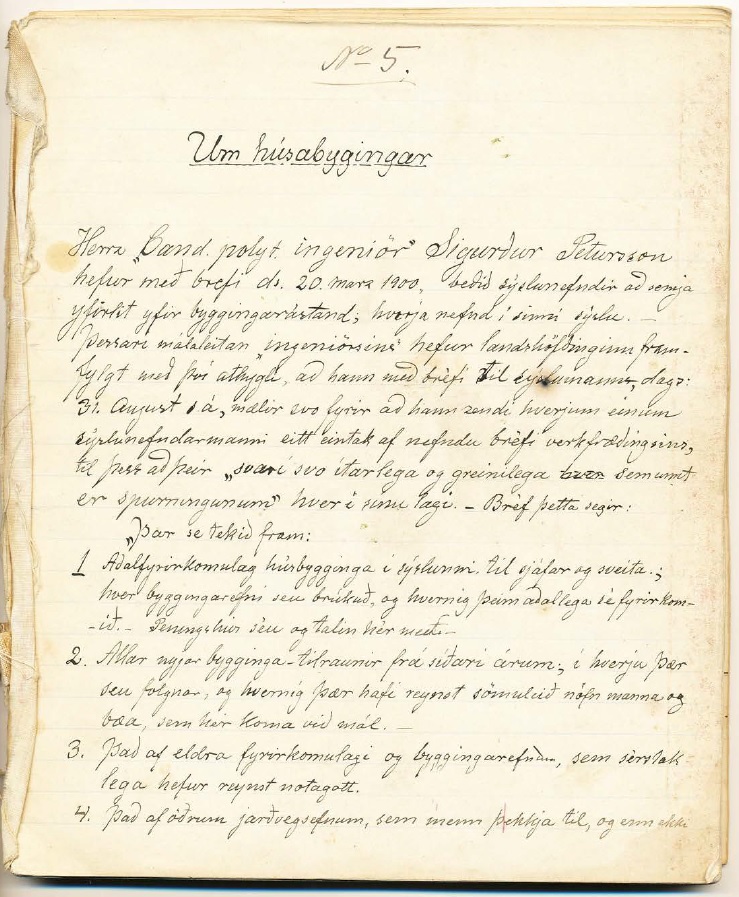 No 5.
Um húsabygingar
Herra „Cand. polyt. ingeniör" Sigurður Petursson
hefur með brefi ds. 20. mars 1900, beðið sýslunefndir að semja
yfirlit yfir byggingarástand; hverja nefnd í sinni sýslu. –
Þessari málaleitan „ingeniörsins" hefur landshöfðinginn fram-
fylgt með því athygli, að hann með bréfi til sýslumanns, dags:
31. August s á, mælir svo fyrir að hann sendi hverjum einum
sýslunefndarmanni eitt eintak af nefndu bréfi verkfræðingsins,
til þess að þeir „svari svo ítarlega og greinilega sem unnt
er spurningunum" hver í sínu lagi. – Bréf þetta segir:
„Þar se tekið fram:
1 Aðalfyrirkomulag húsbygginga í sýslunni. til sjáfar og sveita.;
hver byggingarefni séu brúkuð, og hvernig þeim aðallega sé fyrirkom-
-ið. – Peningshús séu og talin hér með –
2. Allar nyjar bygginga-tilraunir frá síðari árum; í hverju þær
seu fólgnar, og hvernig þær hafi reynst sömuleið nöfn manna og
bæa, sem hér koma við mál. –
3. Það af eldra fyrirkomulagi og byggingarefnum, sem sérstak-
lega hefur reynst notagott.
4. Það af öðrum jarðvegsefnum, sem menn þekkja til, og enn ekki